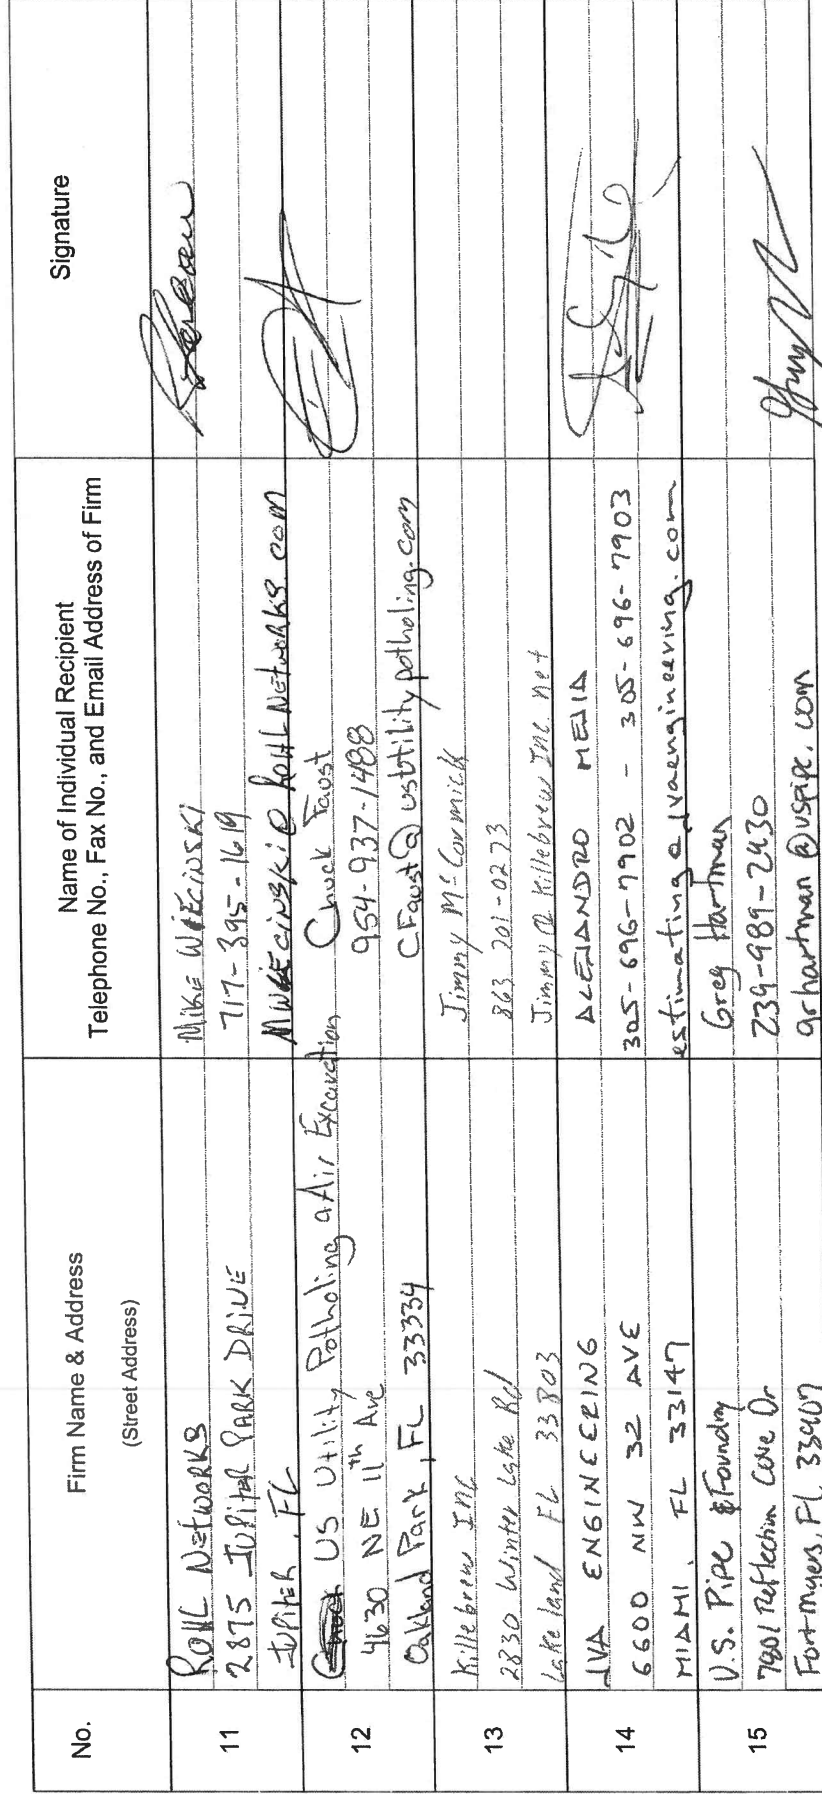 No.
Firm Name & Address
(Street Address)
Name of Individual Recipient
Telephone No., Fax No., and Email Address of Firm
Signature
11
ROHL NETWORKS
2875 JUPITER PARK DRIVE
JUPITER, FL
MIKE WIECINSKI
717-395-1619
@ ROHLNETWORKS.COM
12
US Utility Potholing & Air Excavation
4630 NE 11th Ave
Oakland Park, FL 33334
Chuck Faust
954-937-1488
CFaust@usutilitypotholing.com
13
Killebrew Inc
2830 Winter Lake Rd
Lakeland FL 33803
Jimmy McCormick
863 701-0273
Jimmy@KillebrewInc.net
14
JVA ENGINEERING
6600 NW 32 AVE
MIAMI, FL 33147
ALEJANDRO MEJIA
305-696-7902 - 305-696-7903
estimating@jvaengineering.com
15
U.S. Pipe & Foundry
7801 Reflection Cove Dr
Fort Myers, FL 33907
Greg Hartman
239-989-2430
grhartman@uspipe.com